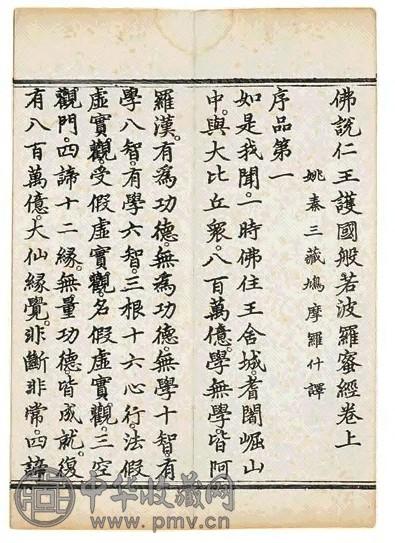 佛說仁王護國般若波羅蜜經卷上
姚秦三藏鳩摩羅什譯
序品第一
如是我聞。一時佛住王舍城。耆闍崛山
中。與大比丘衆。八百萬億。學無學。皆阿
羅漢。有為功德。無為功德。無學十智。有
學八智。有學六智。三根十六心行。法假
虛實觀。受假虛實觀。名假虛實觀。三空
觀門。四諦十二緣。無量功德皆成就。復
有八百萬億。大仙緣覺。非斷非常。四諦
中华收藏网
www.pmv.cn